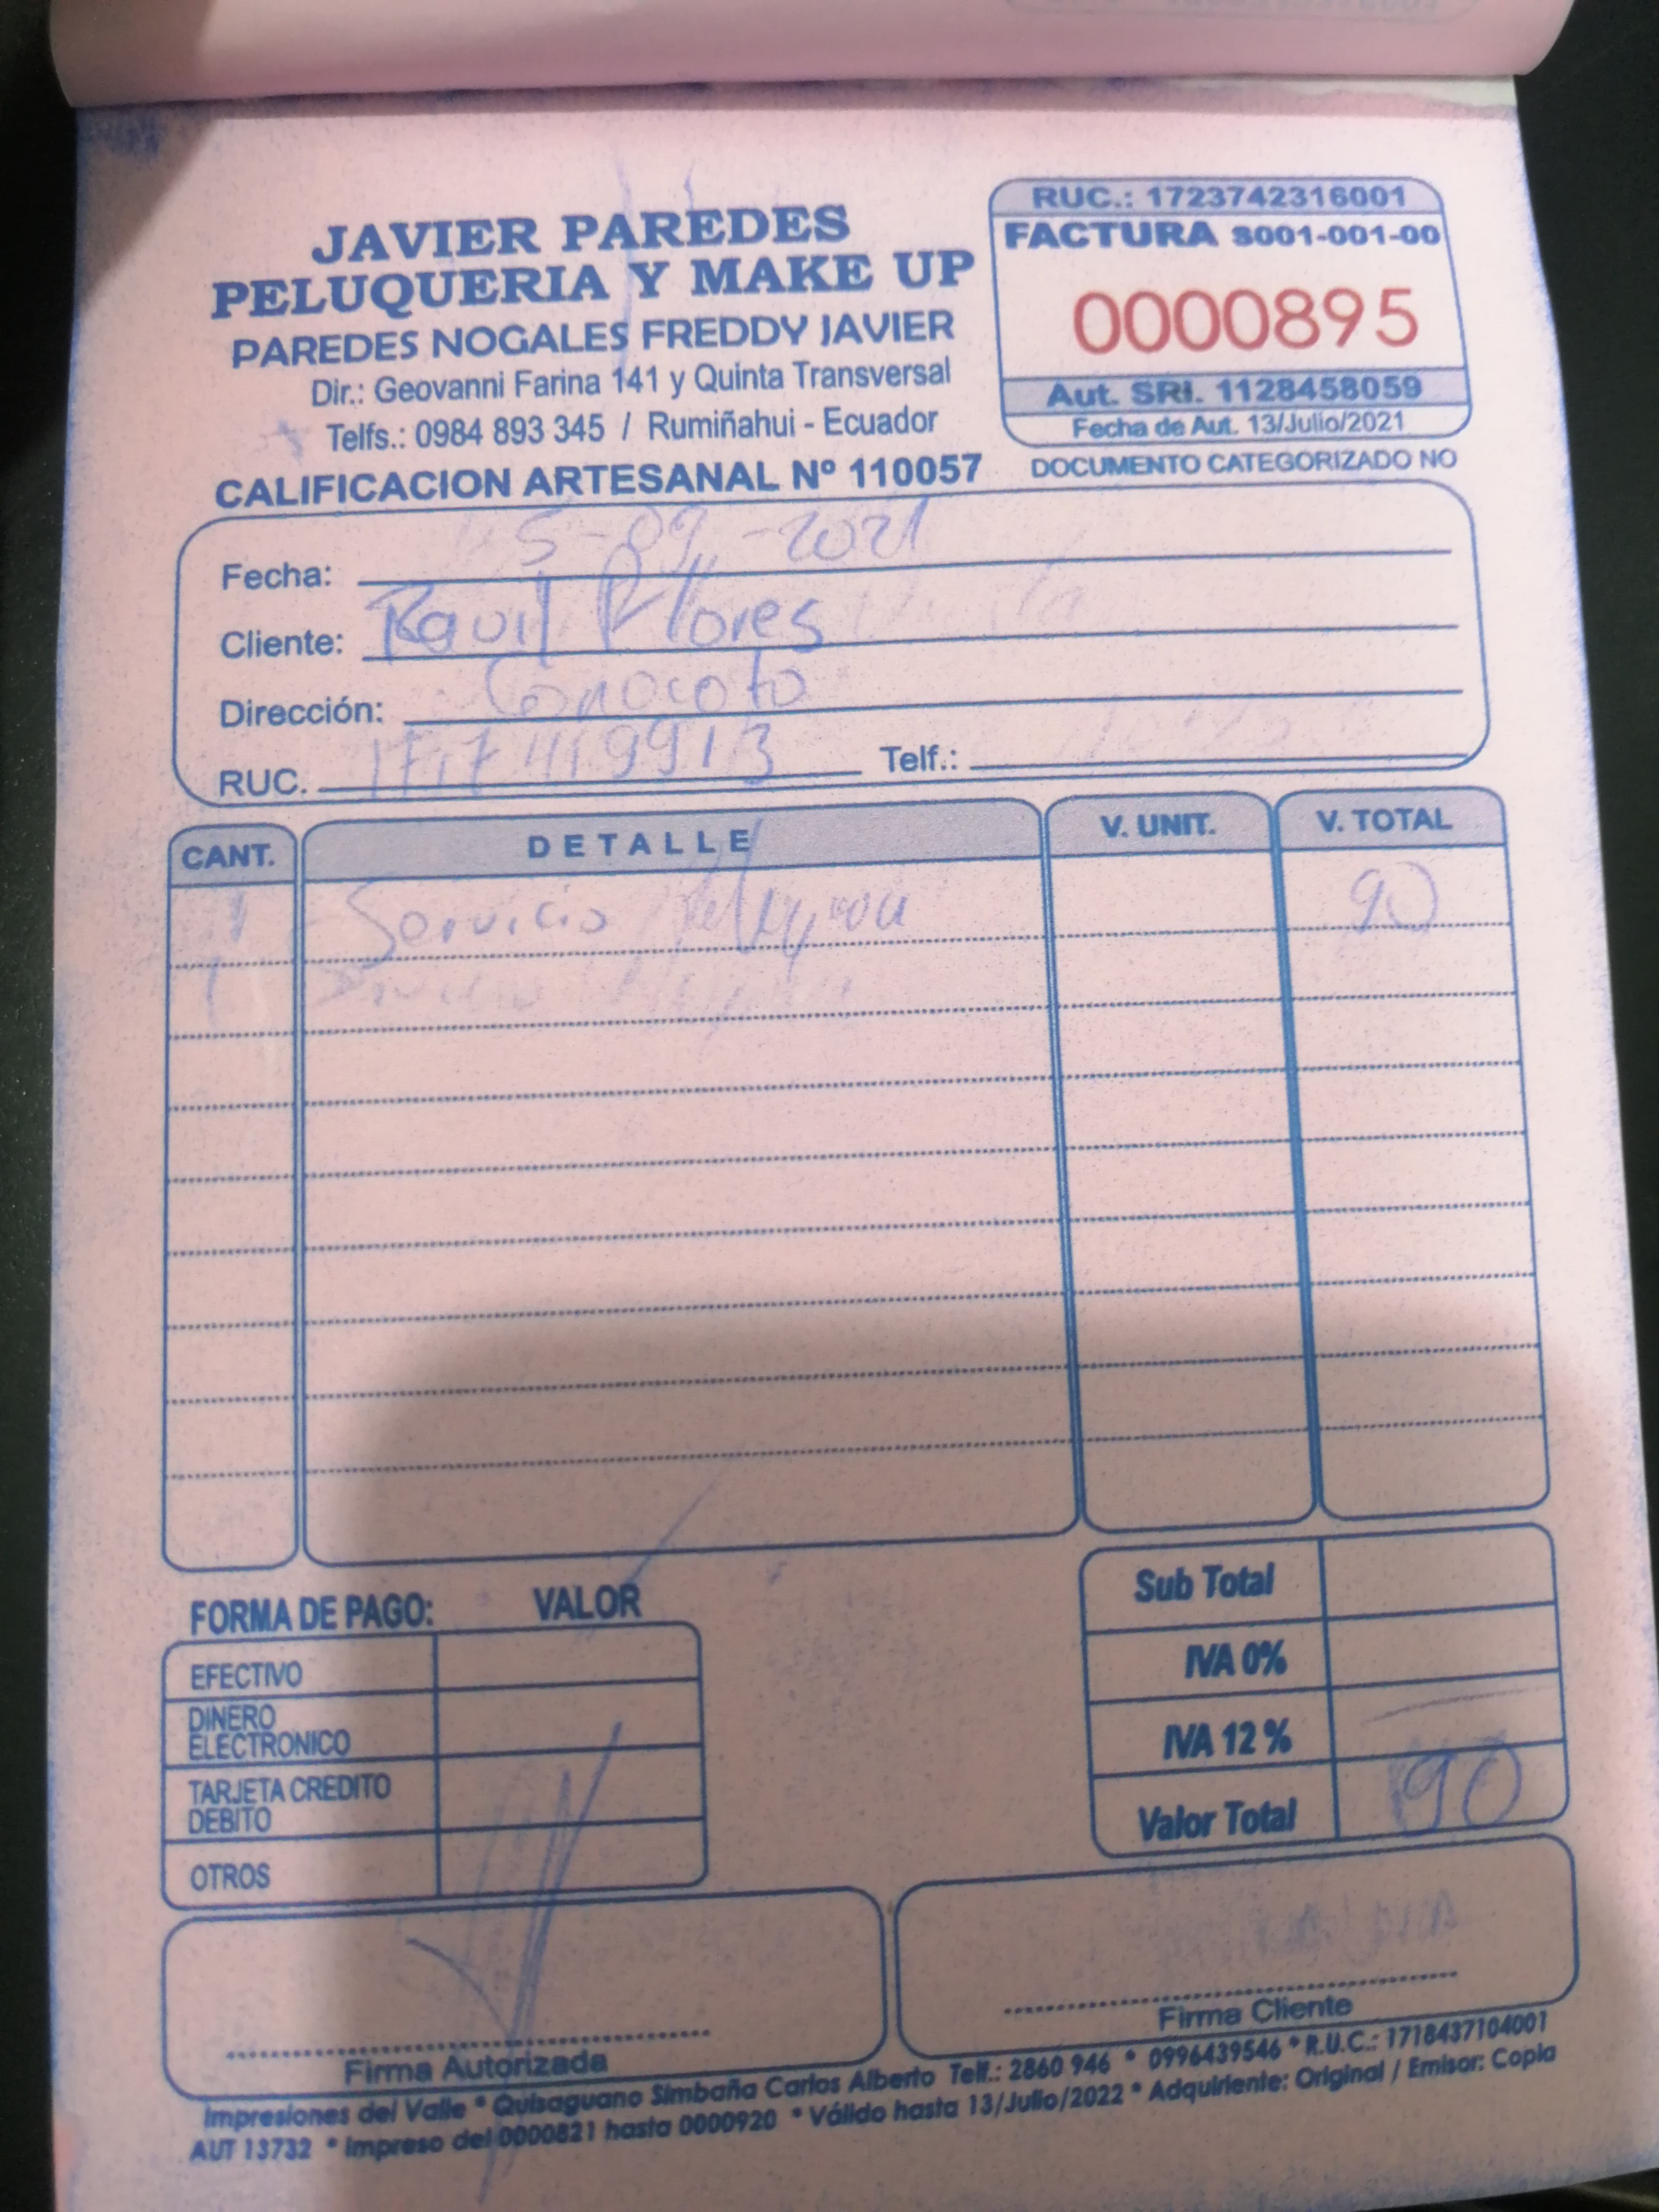 JAVIER PAREDES
PELUQUERIA Y MAKE UP
PAREDES NOGALES FREDDY JAVIER
Dir.: Geovanni Farina 141 y Quinta Transversal
Telfs.: 0984 893 345 / Rumiñahui - Ecuador
CALIFICACION ARTESANAL Nº 110057
RUC.: 1723742316001
FACTURA S001-001-00
0000895
Aut. SRI. 1128458059
Fecha de Aut. 13/Julio/2021
DOCUMENTO CATEGORIZADO NO
Fecha: 5-09-2021
Cliente: Raul Flores
Dirección: Conocoto
RUC. 1717419913 Telf.:
CANT. DETALLE V. UNIT. V. TOTAL
1 Servicio 90
FORMA DE PAGO: VALOR
EFECTIVO
DINERO
ELECTRONICO
TARJETA CREDITO
DEBITO
OTROS
Sub Total
IVA 0%
IVA 12 %
Valor Total 90
Firma Autorizada
Firma Cliente
Impresiones del Valle * Quisaguano Simbaña Carlos Alberto Telf.: 2860 946 * 0996439546 * R.U.C.: 1718437104001
AUT 13732 * Impreso del 0000821 hasta 0000920 * Válido hasta 13/Julio/2022 * Adquiriente: Original / Emisor: Copia